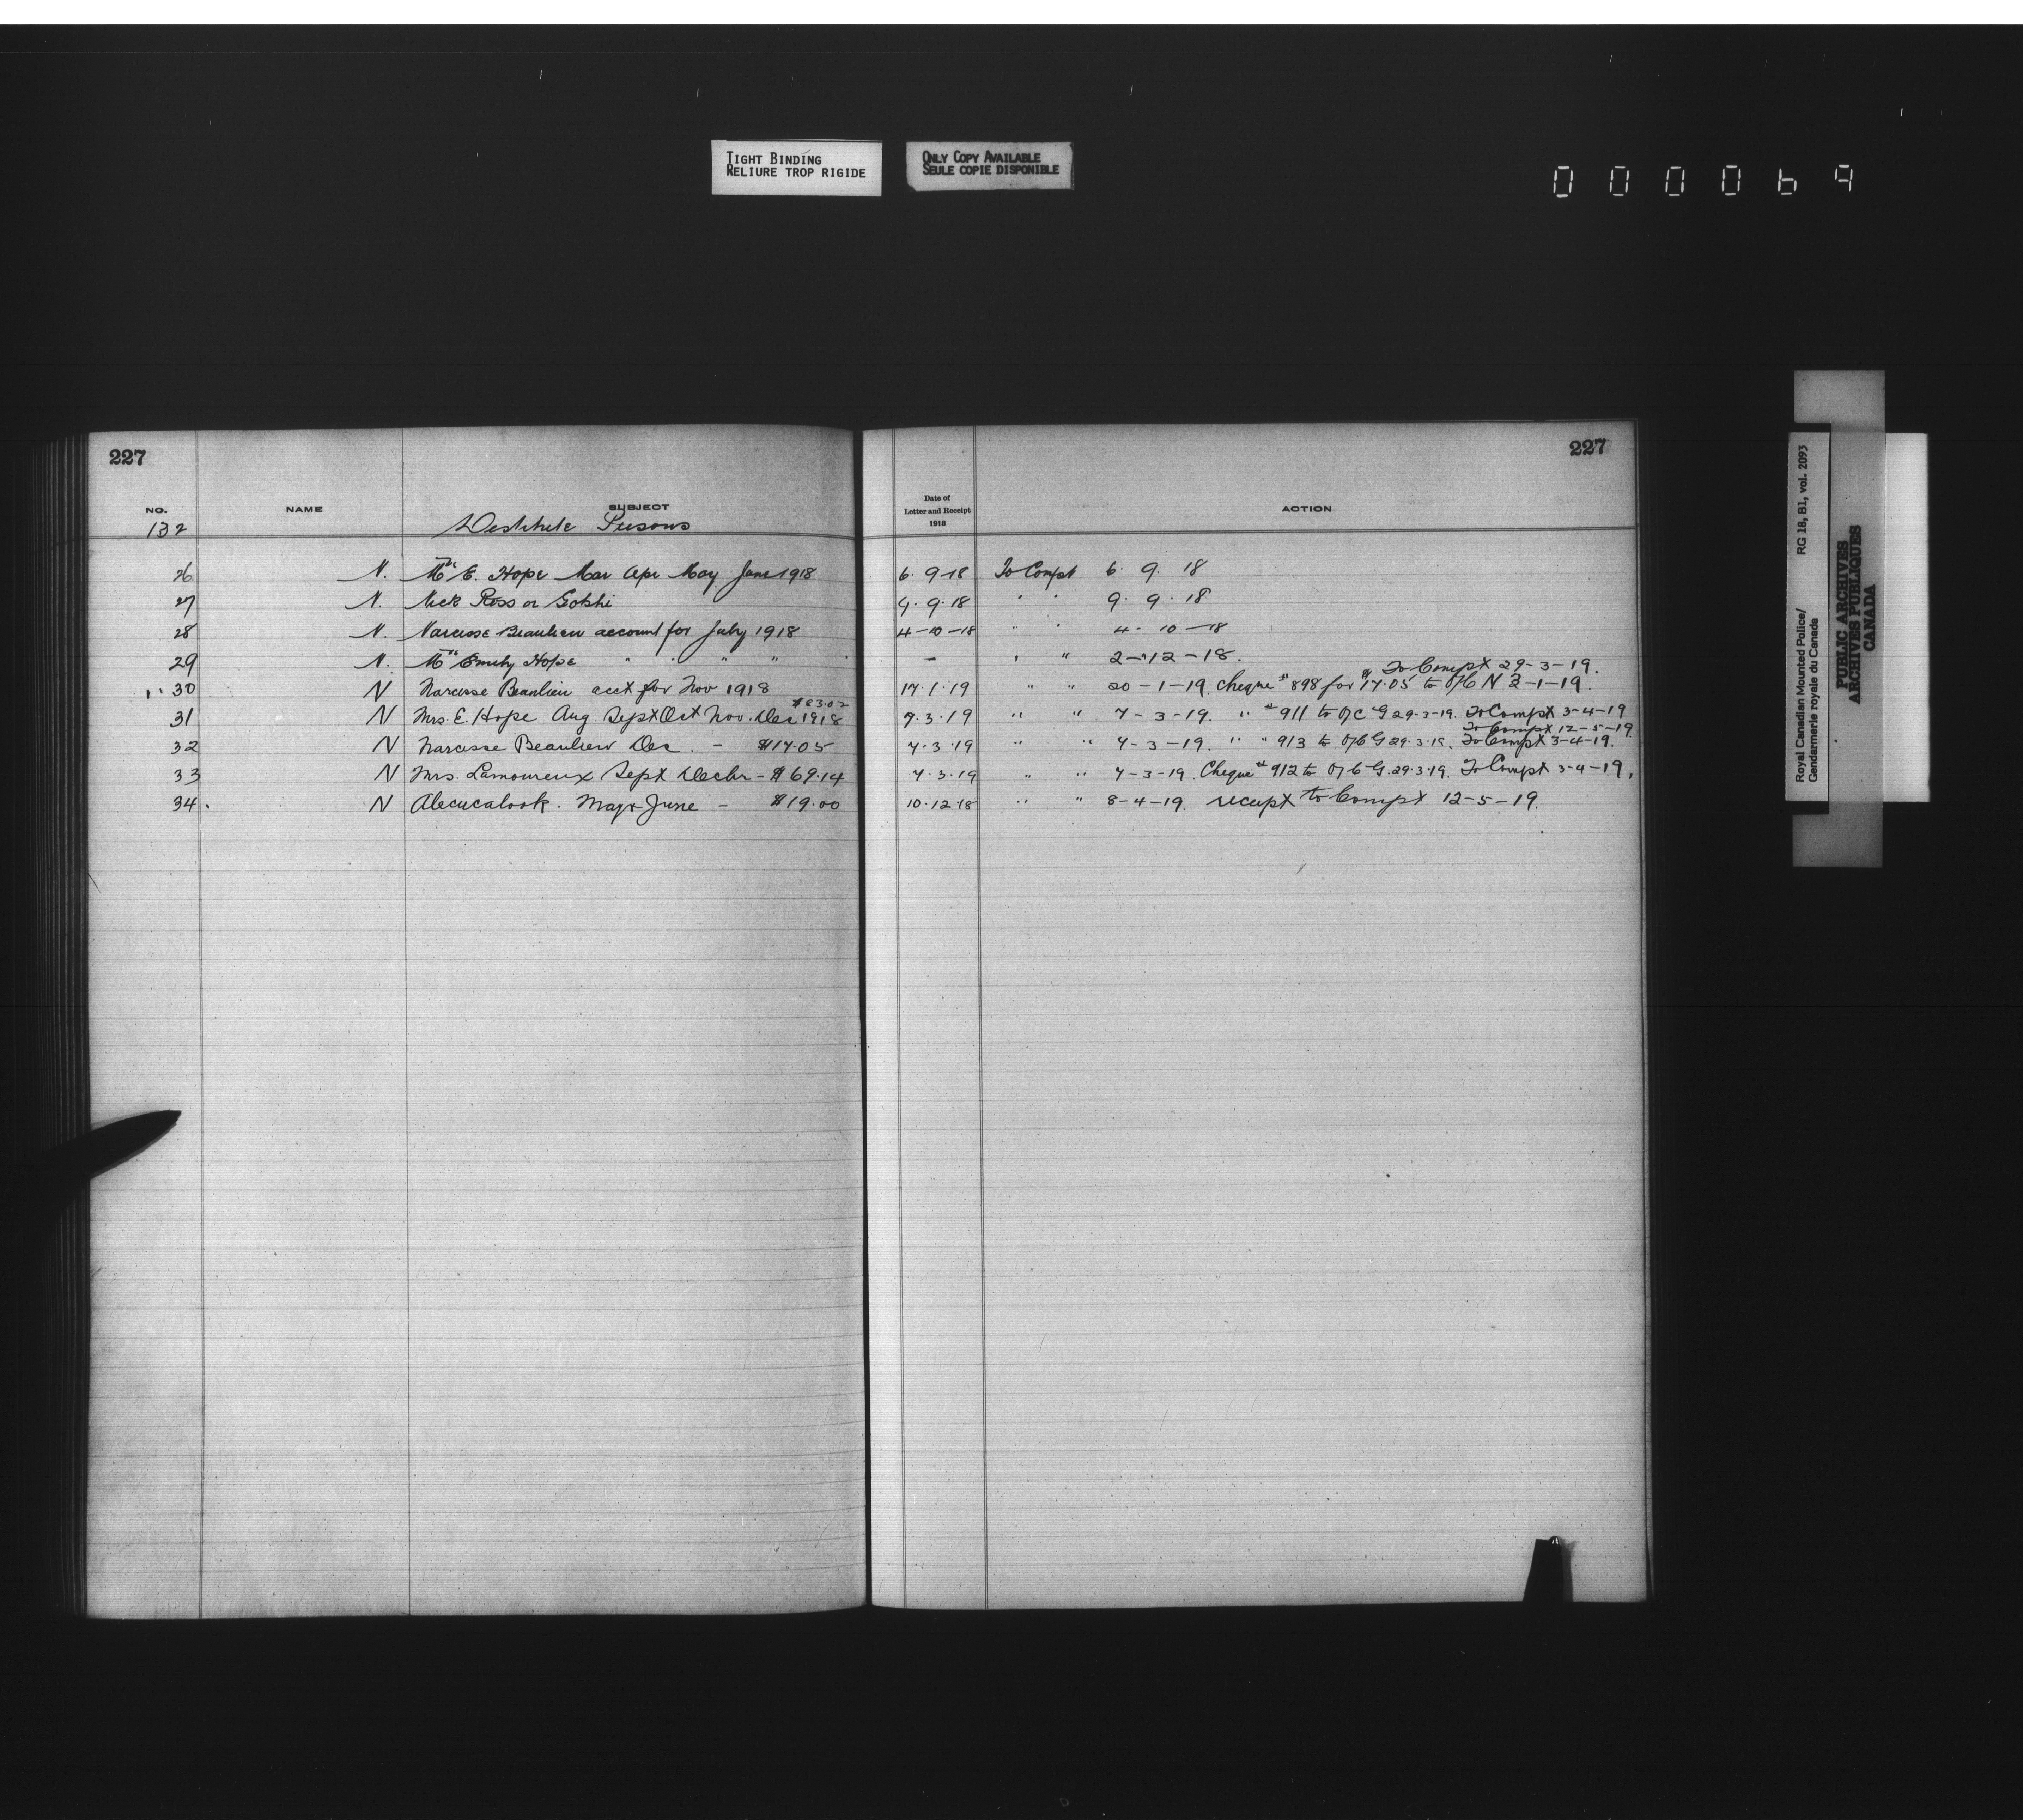 TIGHT BINDING
RELIURE TROP RIGIDE
ONLY COPY AVAILABLE
SEULE COPIE DISPONIBLE
000069
227
227
NO. NAME SUBJECT
132 Destitute Persons
Date of
Letter and Receipt
1918
ACTION
26 N. Mrs E. Hope Mar Apr May June 1918 6. 9-18 To Compt 6. 9. 18
27 N. Nick Ross or 9. 9. 18 " " 9. 9. 18
28 N. Narcisse Beaulieu account for July 1918 4-10-18 " " 4-10-18
29 N. Mrs Emily Hope " " " " - " " 2-12-18.
To Compt 29-3-19.
30 N Narcisse Beaulieu acct for Nov 1918 17.1.19 " " 20-1-19. Cheque # 898 for $17.05 to O/C N -1-19.
$83.02
31 N Mrs. E. Hope Aug. Sept Oct Nov. Dec 1918 7.3.19 " " 7-3-19. " # 911 to O/C G 29-3-19. To Compt 3-4-19
To Compt 12-5-19
32 N Narcisse Beaulieu Dec. - $17.05 7.3.19 " " 7-3-19. " " 913 to O/C G 29.3.19. To Compt 3-4-19.
33 N Mrs. Lamoureux Sept Decbr - $69.14 7.3.19 " " 7-3-19. Cheque # 912 to O/C G. 29.3.19. To Compt 3-4-19.
34. N Alecucalook. May & June - $19.00 10.12.18 " " 8-4-19. receipt to Compt 12-5-19.
Royal Canadian Mounted Police/ RG 18, B1, vol. 2093
Gendarmerie royale du Canada
PUBLIC ARCHIVES
ARCHIVES PUBLIQUES
CANADA